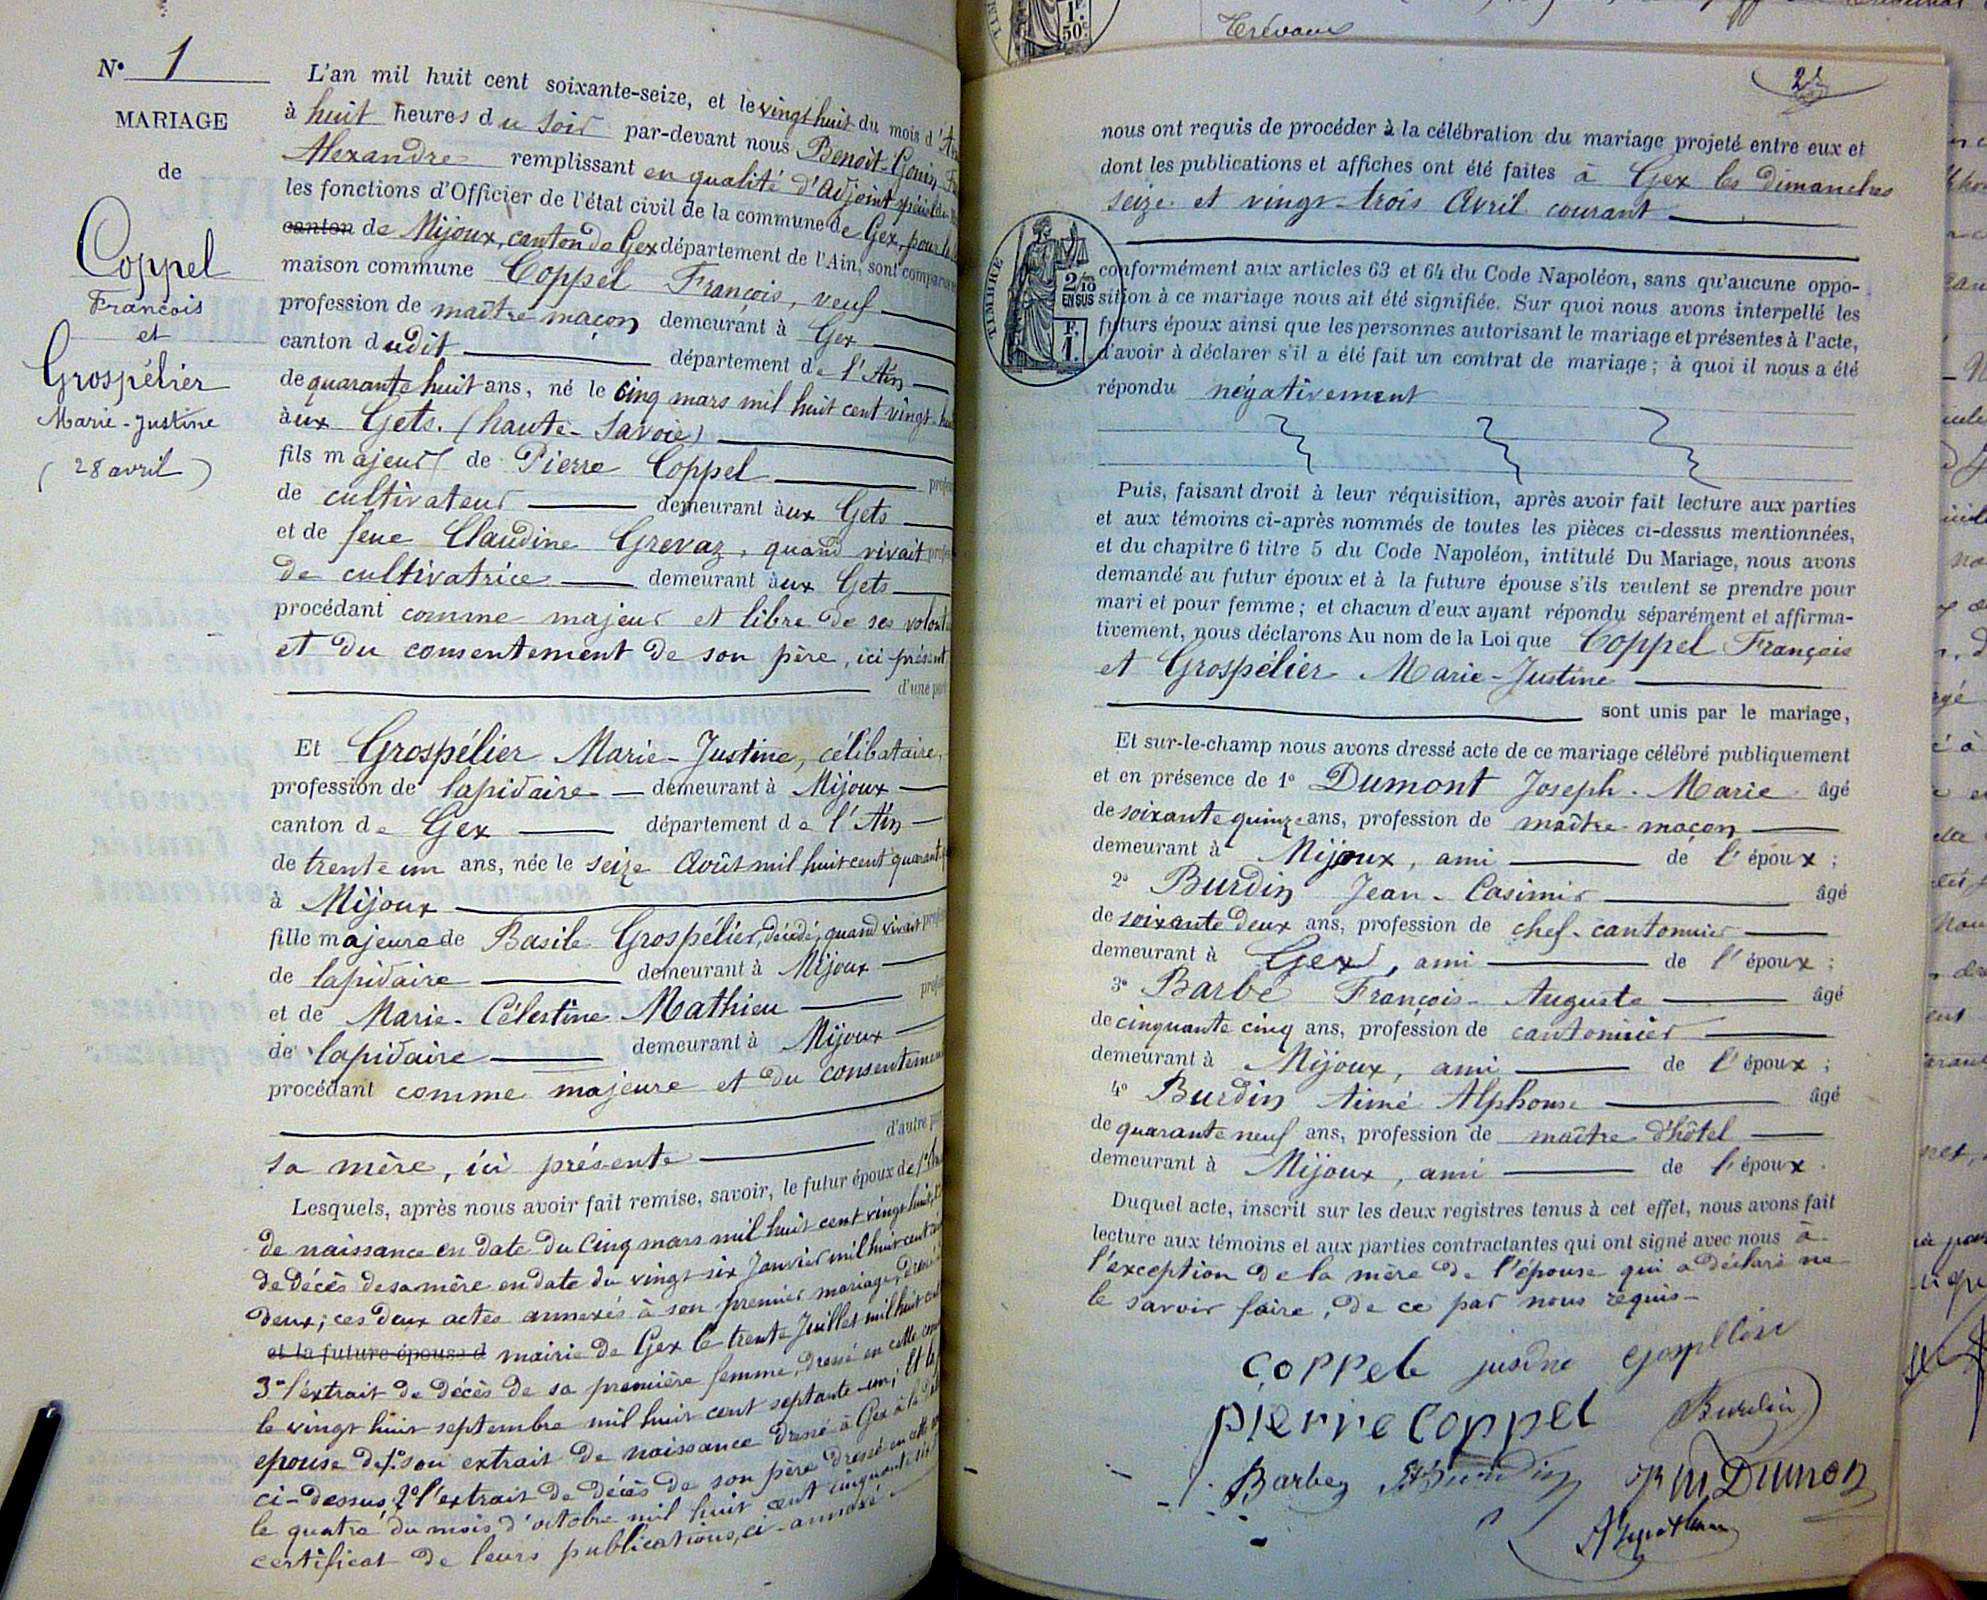 N° 1
MARIAGE
de
Coppel
François
et
Grospélier
Marie-Justine
(28 avril)
L'an mil huit cent soixante-seize, et le vingt huit du mois d'
à huit heures du soir par-devant nous Benoît-Gonin
Alexandre remplissant en qualité d'adjoint spécial
les fonctions d'Officier de l'état civil de la commune de Gex, pour la
canton de Mijoux, canton de Gex département de l'Ain, sont
maison commune Coppel François, veuf
profession de maître-maçon demeurant à Gex
canton dudit département de l'Ain
de quarante huit ans, né le cinq mars mil huit cent vingt-
aux Gets. (haute-Savoie)
fils majeur de Pierre Coppel
de cultivateur demeurant aux Gets
et de feue Claudine Grevaz, quand vivait
de cultivatrice demeurant aux Gets
procédant comme majeur et libre de ses
et du consentement de son père, ici présent
d'une
Et Grospélier Marie-Justine, célibataire,
profession de lapidaire demeurant à Mijoux
canton de Gex département de l'Ain
de trente un ans, née le seize Août mil huit cent
à Mijoux
fille majeure de Basile Grospélier, décédé, quand vivait
de lapidaire demeurant à Mijoux
et de Marie-Célestine Mathieu
de lapidaire demeurant à Mijoux
procédant comme majeure et du
d'autre
sa mère, ici présente
Lesquels, après nous avoir fait remise, savoir, le futur époux de 1°
de naissance en date du cinq mars mil huit cent vingt huit,
de décès de sa mère en date du vingt six Janvier mil huit cent
deux; ces deux actes annexés à son premier mariage,
et la future épouse d mairie de Gex le trente Juillet mil huit
3° l'extrait de décès de sa première femme, dressé en cette
le vingt huit septembre mil huit cent septante-un; Et la
epouse de 1° son extrait de naissance dressé à Gex à la
ci-dessus, 2° l'extrait de décès de son père dressé en cette
le quatre du mois d'octobre mil huit cent cinquante
certificat de leurs publications, ci-annexé
Trévoux
2
nous ont requis de procéder à la célébration du mariage projeté entre eux et
dont les publications et affiches ont été faites à Gex les dimanches
seize et vingt-trois Avril courant
TIMBRE
2/10
EN SUS
F.
1.
conformément aux articles 63 et 64 du Code Napoléon, sans qu'aucune oppo-
sition à ce mariage nous ait été signifiée. Sur quoi nous avons interpellé les
futurs époux ainsi que les personnes autorisant le mariage et présentes à l'acte,
d'avoir à déclarer s'il a été fait un contrat de mariage; à quoi il nous a été
répondu négativement
Puis, faisant droit à leur réquisition, après avoir fait lecture aux parties
et aux témoins ci-après nommés de toutes les pièces ci-dessus mentionnées,
et du chapitre 6 titre 5 du Code Napoléon, intitulé Du Mariage, nous avons
demandé au futur époux et à la future épouse s'ils veulent se prendre pour
mari et pour femme; et chacun d'eux ayant répondu séparément et affirma-
tivement, nous déclarons Au nom de la Loi que Coppel François
et Grospélier Marie-Justine
sont unis par le mariage,
Et sur-le-champ nous avons dressé acte de ce mariage célébré publiquement
et en présence de 1° Dumont Joseph-Marie âgé
de soixante quinze ans, profession de maître-maçon
demeurant à Mijoux, ami de l'époux;
2° Burdin Jean-Casimir âgé
de soixante deux ans, profession de chef-cantonnier
demeurant à Gex, ami de l'époux;
3° Barbe François-Auguste âgé
de cinquante cinq ans, profession de cantonnier
demeurant à Mijoux, ami de l'époux;
4° Burdin Aimé Alphonse âgé
de quarante neuf ans, profession de maître d'hôtel
demeurant à Mijoux, ami de l'époux.
Duquel acte, inscrit sur les deux registres tenus à cet effet, nous avons fait
lecture aux témoins et aux parties contractantes qui ont signé avec nous à
l'exception de la mère de l'épouse qui a déclaré ne
le savoir faire, de ce par nous requis-
Coppel
pierre Coppel Burdin
Barbe Burdin